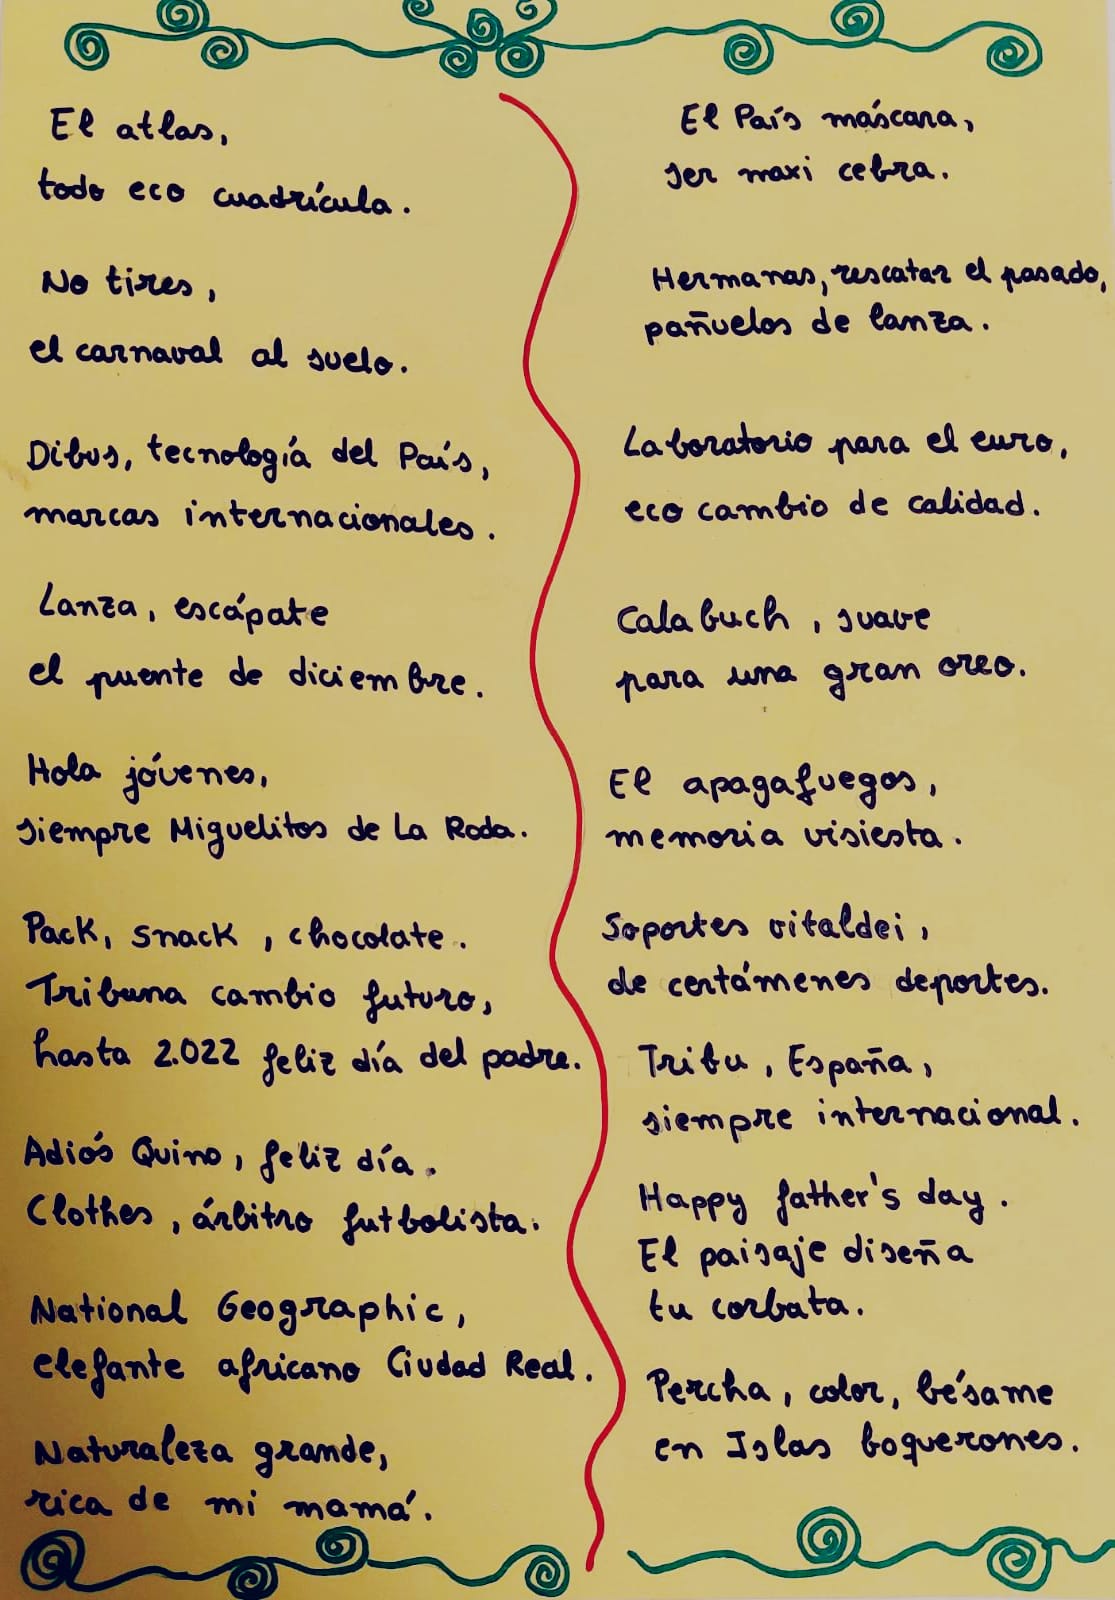 El atlas,
todo eco cuadrícula.
No tires,
el carnaval al suelo.
Dibus, tecnología del País,
marcas internacionales.
Lanza, escápate
el puente de diciembre.
Hola jóvenes,
siempre Miguelitos de La Roda.
Pack, snack, chocolate.
Tribuna cambio futuro,
hasta 2.022 feliz día del padre.
Adiós Quino, feliz día.
Clothes, árbitro futbolista.
National Geographic,
elefante africano Ciudad Real.
Naturaleza grande,
rica de mi mamá.
El País máscara,
ser maxi cebra.
Hermanas, rescatar el pasado,
pañuelos de lanza.
Laboratorio para el euro,
eco cambio de calidad.
Calabuch, suave
para una gran oreo.
El apagafuegos,
memoria visiesta.
Soportes vitaldei,
de certámenes deportes.
Tribu, España,
siempre internacional.
Happy father's day.
El paisaje diseña
tu corbata.
Percha, color, bésame
en Islas boquerones.